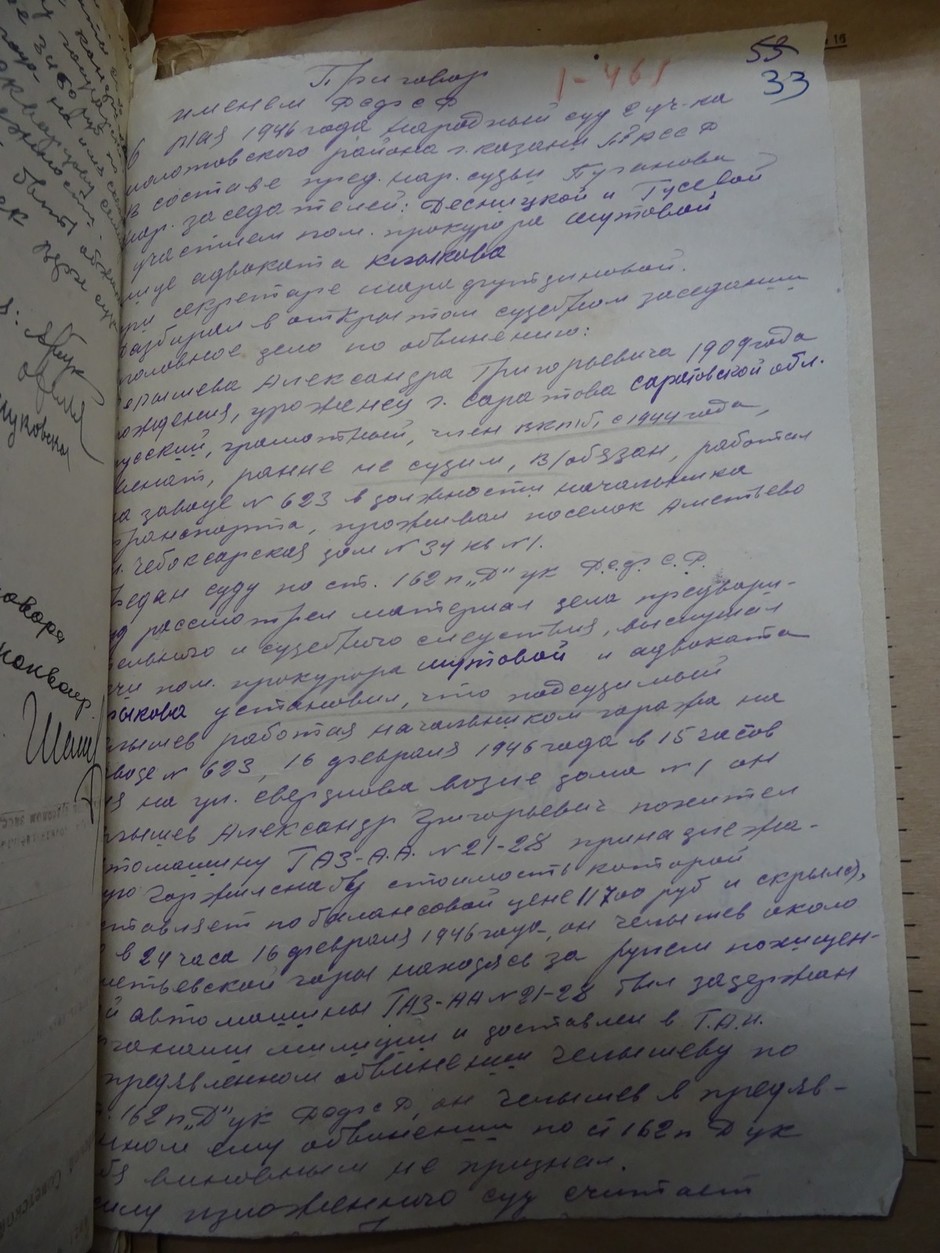 55
1-461
33
Приговор
именем РСФСР
6 мая 1946 года народный суд 2 уч-ка
молотовского района г. казани ТАССР
В составе пред. нар. судьи Пузанова
нар. заседателей: Десницкой и Гусевой
участием пом. прокурора шутовой
лице адвоката клыкова
при секретаре шарафутдиновой.
разбирал в открытом судебном заседании
головное дело по обвинению:
Александра Григорьевича 1909 года
рождения, уроженец г. саратова саратовской обл.
русский, грамотный, член ВКПб, с 1944 года,
женат, ранне не судим, в/обязан, работал
на заводе N 623 в должности начальника
транспорта, проживал поселок Аметьево
л. чебоксарская дом N 34 кв N 1.
редан суду по ст. 162 п „Д" ук Р.с.ф.с.Р.
уд рассмотрел материал дела предвари-
тельного и судебного следствия, выслушал
чи пом. прокурора шутовой и адвоката
лыкова установил, что подсудимый
лышев работая начальником гаража на
воде N 623, 16 февраля 1946 года в 15 часов
на ул. свердлова возле дома N 1 он
лышев Александр Григорьевич похитил
томашину ГАЗ-А.А. N 21-28 принадлежа-
ую горжилснабу стоимость которой
ставляет по балансовой цене 11700 руб и скрылся,
в 24 часа 16 февраля 1946 года, он челышев около
метьевской горы находясь за рулем похищен-
й автомашины ГАЗ-АА N 21-28 был задержан
ганами милиции и доставлен в Г.А.И.
предявленном обвинении челышеву по
. 162 п „Д" ук РСФСР, он челышев в предяв-
нном ему обвинении по ст 162 п Д ук
бя виновным не признал.
силу изложенного суд считает